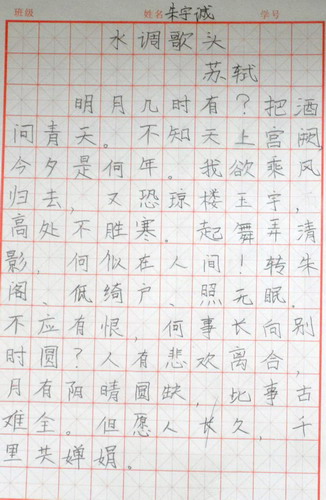 班级 姓名 朱宇诚 学号
水调歌头
苏轼
明月几时有？把酒
问青天。不知天上宫阙，
今夕是何年。我欲乘风
归去，又恐琼楼玉宇，
高处不胜寒。起舞弄清
影，何似在人间！转朱
阁、低绮户、照无眠。
不应有恨，何事长向别
时圆？人有悲欢离合，
月有阴晴圆缺，此事古
难全。但愿人长久，千
里共婵娟。